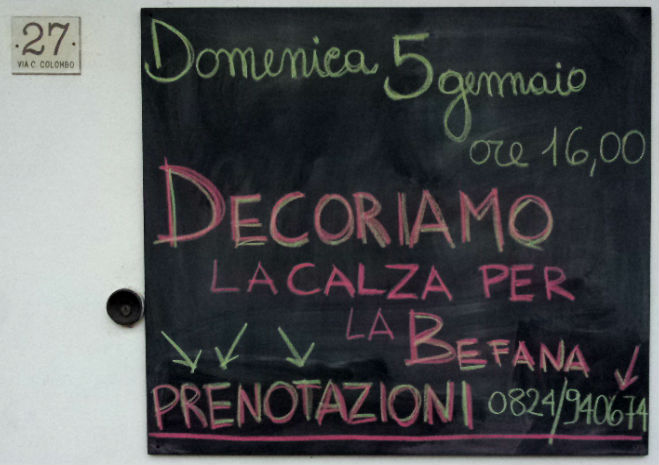 ·27·
VIA C. COLOMBO
Domenica 5 gennaio
ore 16,00
DECORIAMO
LA CALZA PER
LA BEFANA
PRENOTAZIONI 0824/940674